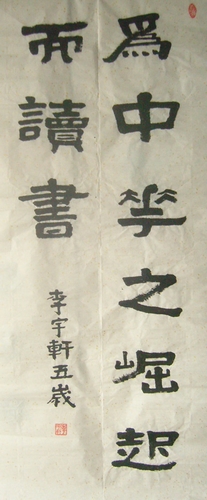 爲中華之崛起
而讀書
李宇軒五歲